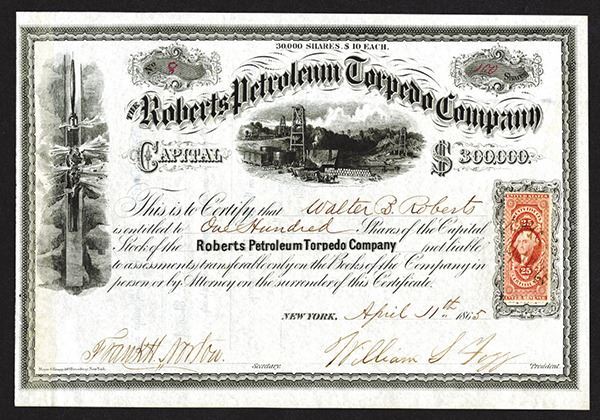 30,000 SHARES. $10 EACH.
No. 8
100 Shares
THE Roberts Petroleum Torpedo Company
CAPITAL $300,000.
This is to Certify that Walter B. Roberts
is entitled to One Hundred Shares of the Capital
Stock of the Roberts Petroleum Torpedo Company not liable
to assessments, transferable only on the Books of the Company in
person or by Attorney on the surrender of this Certificate.
25 25
NEW YORK. April 11th 1865
Frank H. Norton. Secretary.
William S. Fogg President.